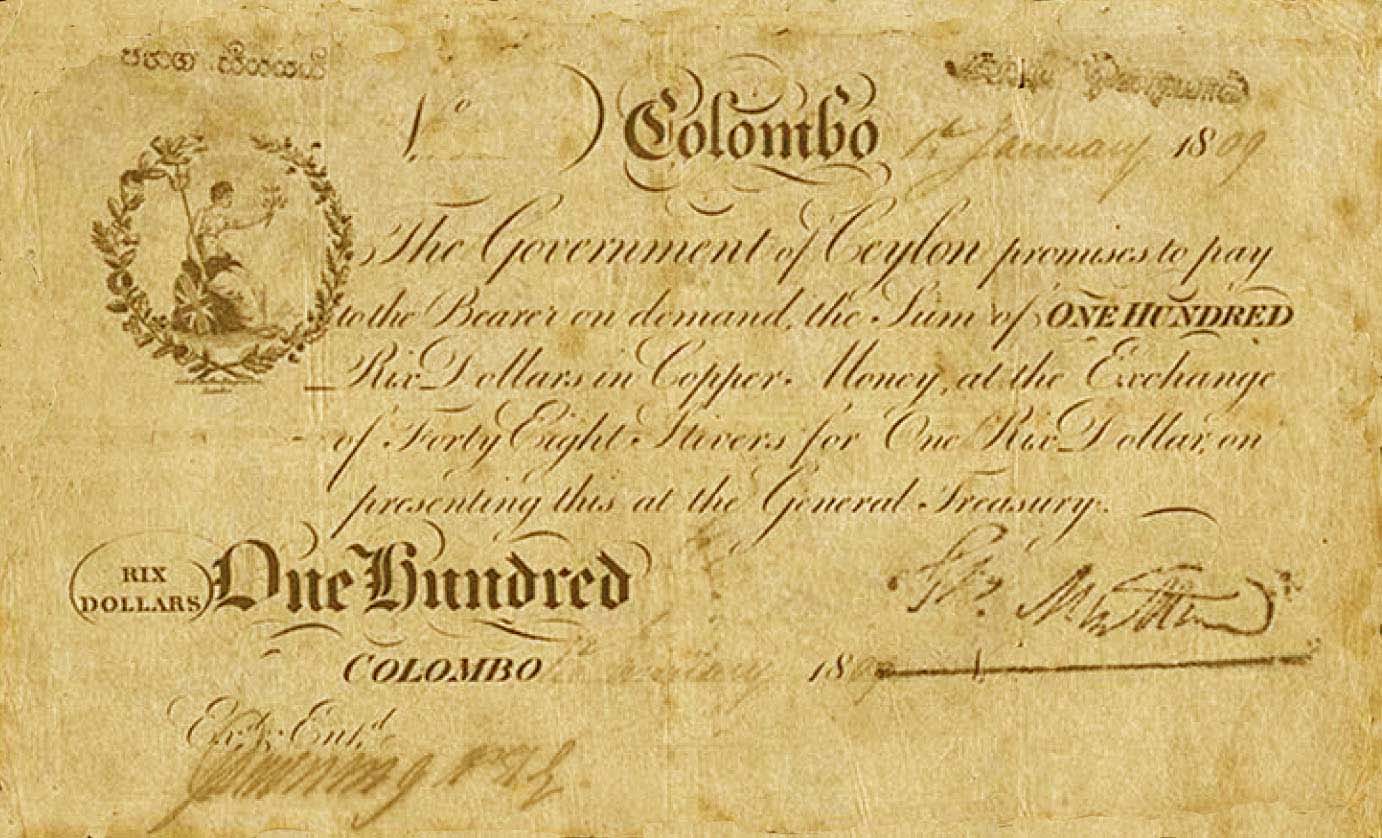 No ) Colombo 1st January 1809
The Government of Ceylon promises to pay
to the Bearer on demand, the Sum of ONE HUNDRED
Rix Dollars in Copper Money, at the Exchange
of Forty Eight Stivers for One Rix Dollar, on
presenting this at the General Treasury.
RIX
DOLLARS
One Hundred
COLOMBO 1st January 1809
Exd. & Entd.